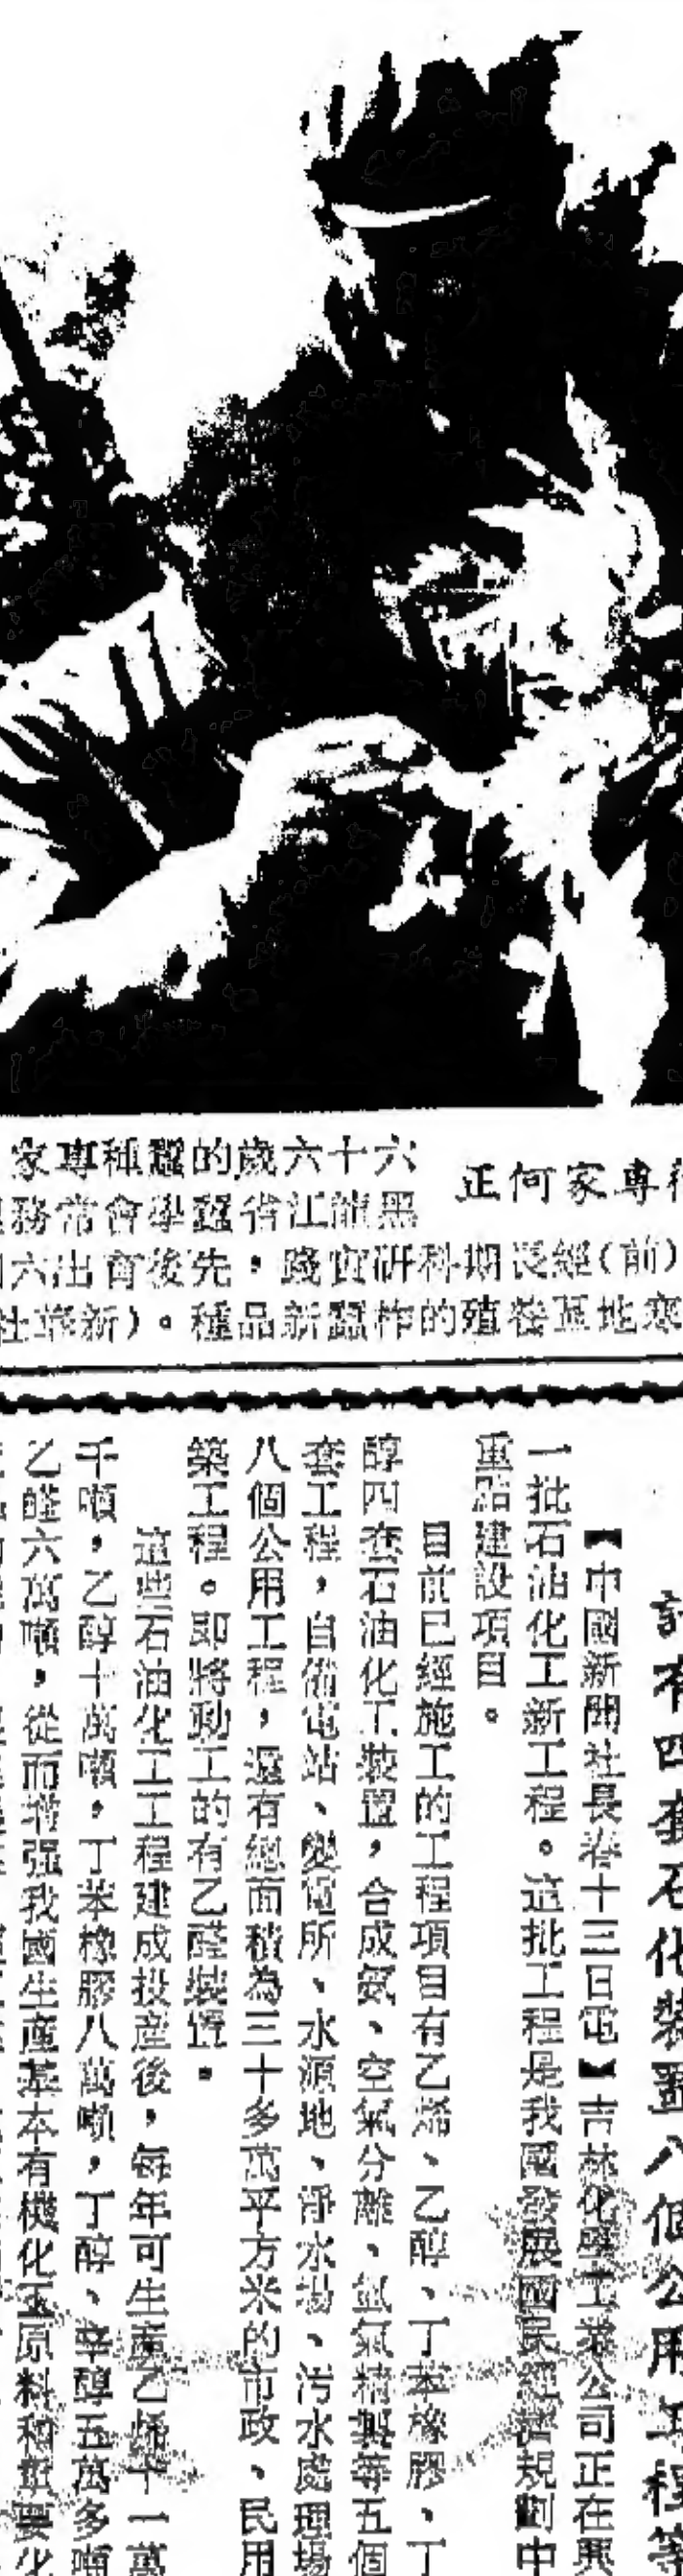 六十六歲的蠶種專家
黑龍江省蠶學會常務
專家何正
(前)經長期科研實踐，先後育出六
寒地區養殖的柞蠶新品種。(新華社
計有四套石化裝置八個公用工程等
【中國新聞社長春十三日電】吉林化學工業公司正在興
一批石油化工新工程。這批工程是我國發展國民經濟規劃中
重點建設項目。
目前已經施工的工程項目有乙烯、乙醇、丁苯橡膠、丁
醇四套石油化工裝置，合成氨、空氣分離、氫氣精製等五個
套工程，自備電站、變電所、水源地、淨水場、污水處理場
八個公用工程，還有總面積為三十多萬平方米的市政、民用
築工程。即將動工的有乙醛裝置。
這些石油化工工程建成投產後，每年可生產乙烯十一萬
千噸，乙醇十萬噸，丁苯橡膠八萬噸，丁醇、辛醇五萬多噸
乙醛六萬噸，從而增强我國生產基本有機化工原料和重要化